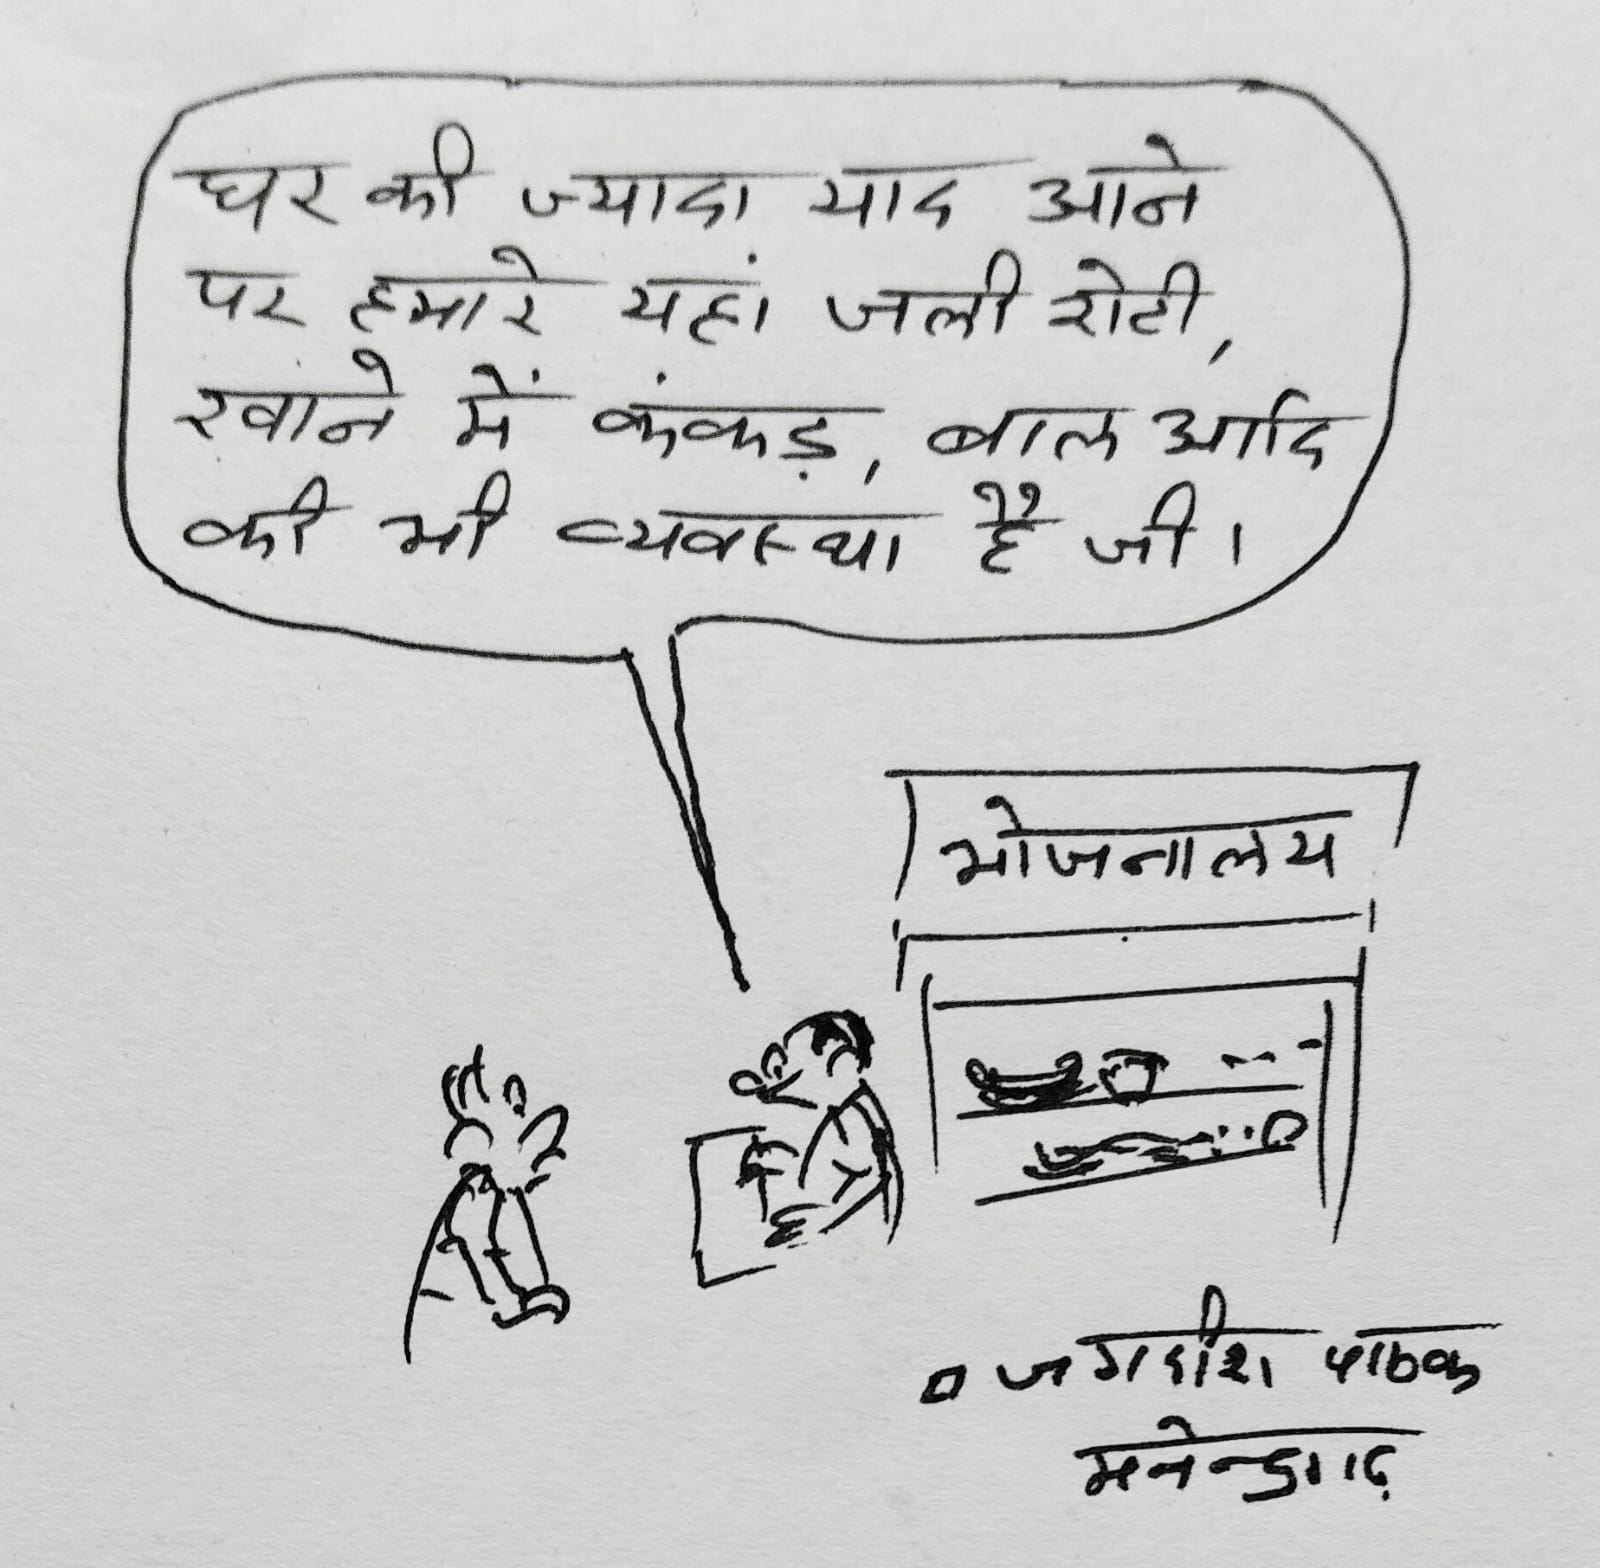 घर की ज्यादा याद आने
पर हमारे यहां जली रोटी,
खाने में कंकड़, बाल आदि
की भी व्यवस्था है जी।
भोजनालय
जगदीश पाठक
मनेन्द्रगढ़